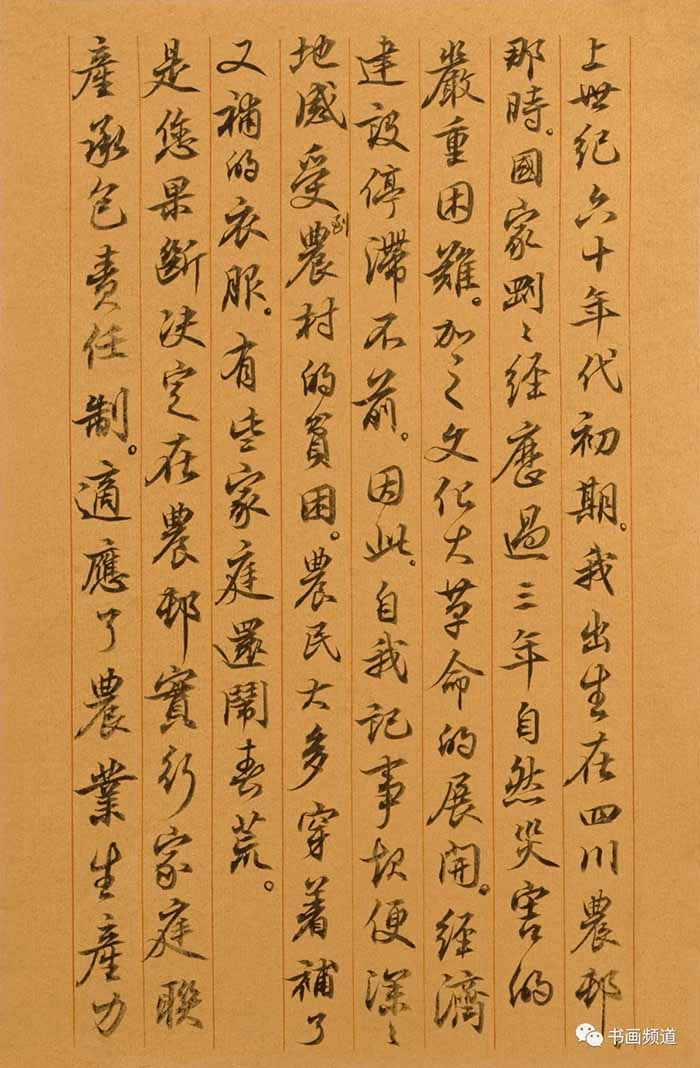 上世纪六十年代初期。我出生在四川農邨
那時。國家剛〻經歷過三年自然災害的
嚴重困難。加之文化大革命的展開。經濟
建設停滯不前。因此。自我記事起便深〻
地感受到農村的貧困。農民大多穿着補了
又補的衣服。有些家庭還鬧春荒。
是您果斷决定在農邨實行家庭聯
產承包责任制。適應了農業生產力
书画频道